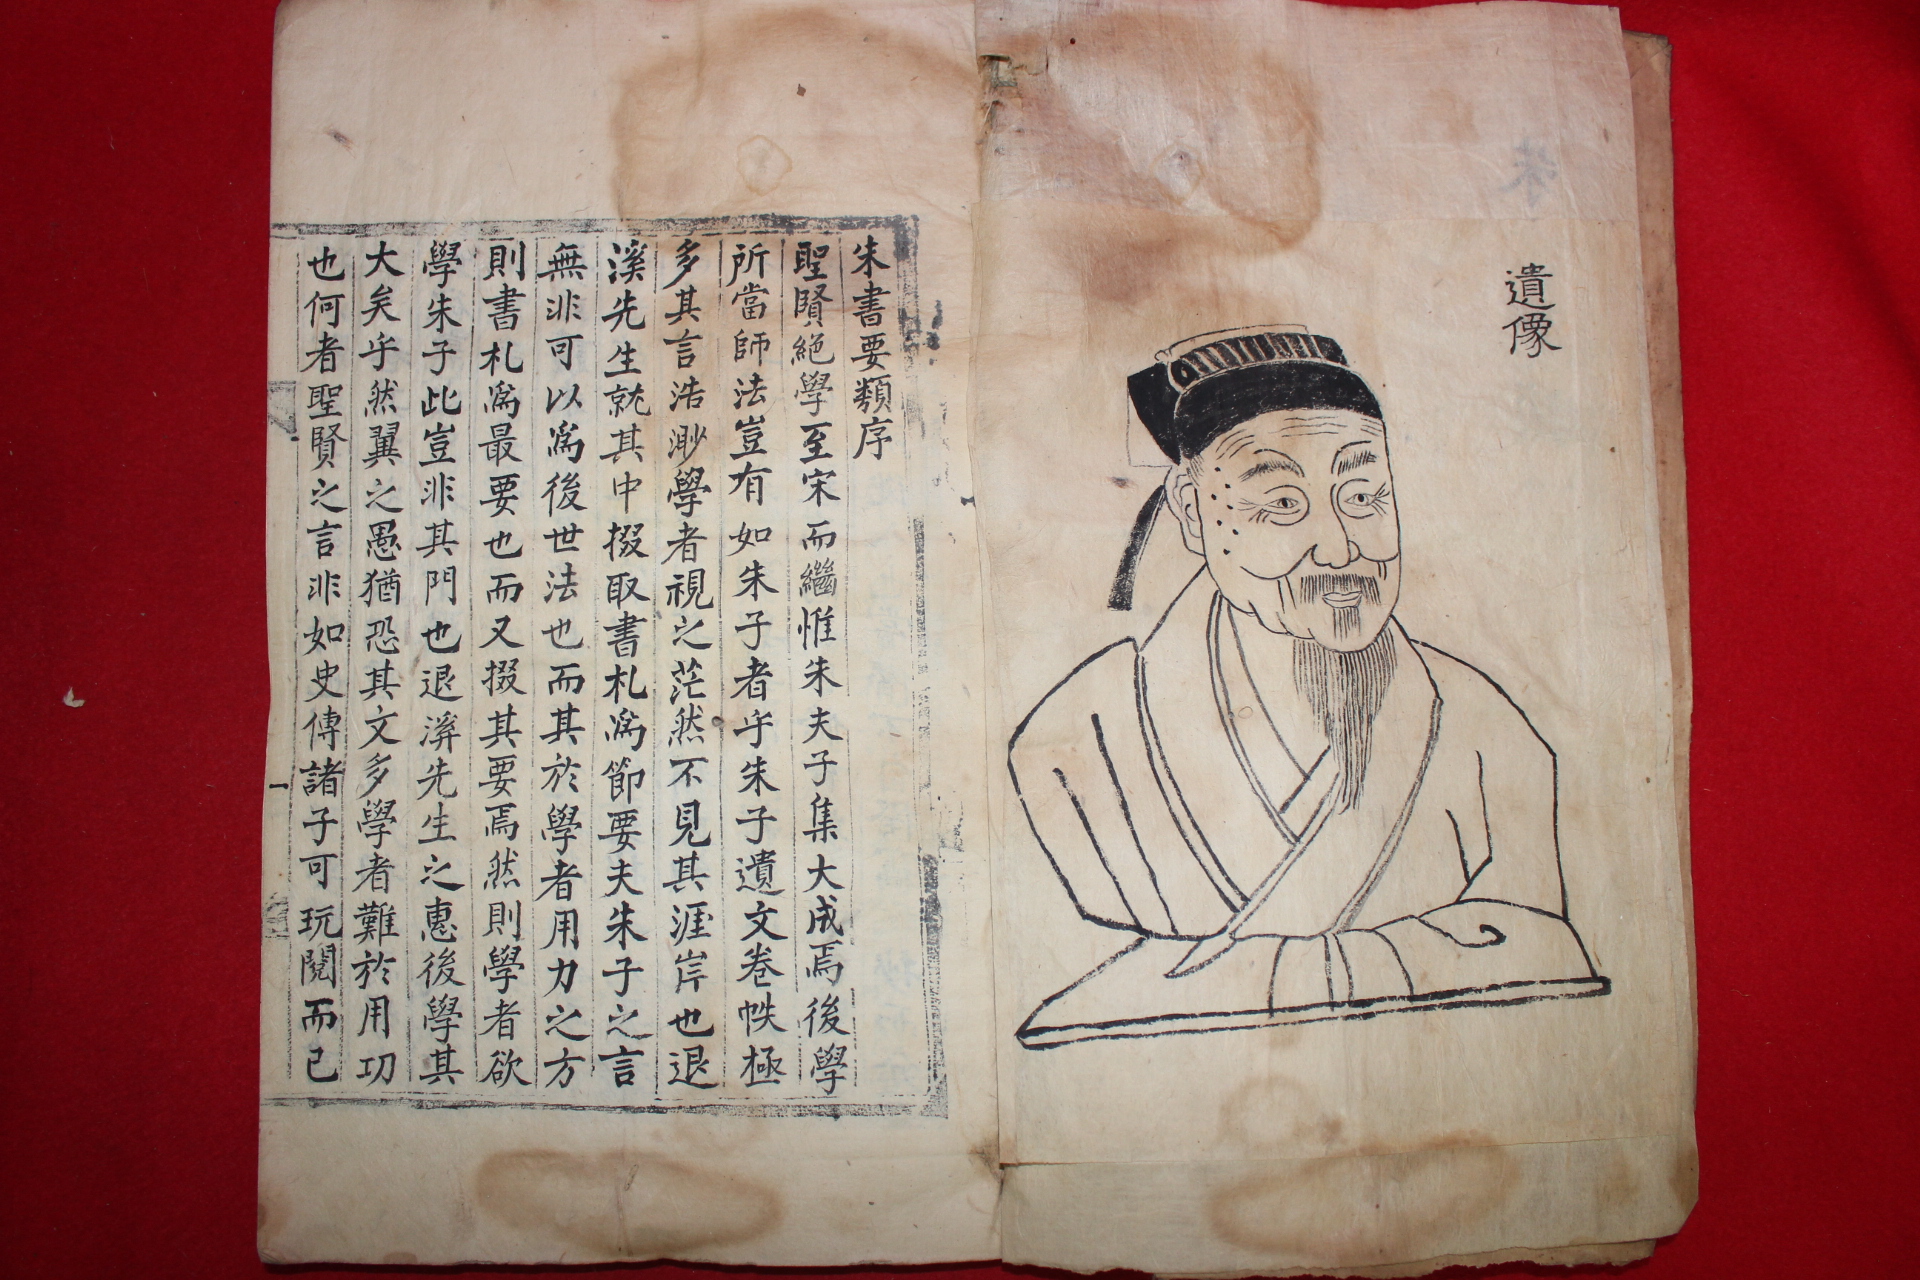 遺像
朱書要類序
聖賢絶學至宋而繼惟朱夫子集大成焉後學
所當師法豈有如朱子者乎朱子遺文卷帙極
多其言浩渺學者視之茫然不見其涯岸也退
溪先生就其中掇取書札爲節要夫朱子之言
無非可以爲後世法也而其於學者用力之方
則書札爲最要也而又掇其要焉然則學者欲
學朱子此豈非其門也退溪先生之惠後學其
大矣乎然翼之愚猶恐其文多學者難於用功
也何者聖賢之言非如史傳諸子可玩閱而已
一